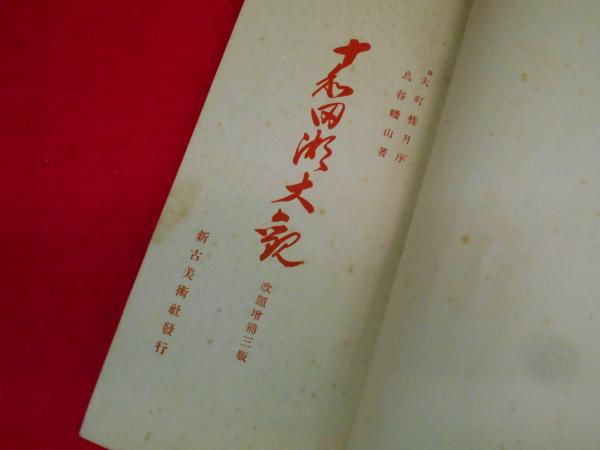 故大町桂月序
鳥谷幡山著
十和田湖大観
改題增補三版
新古美術社發行